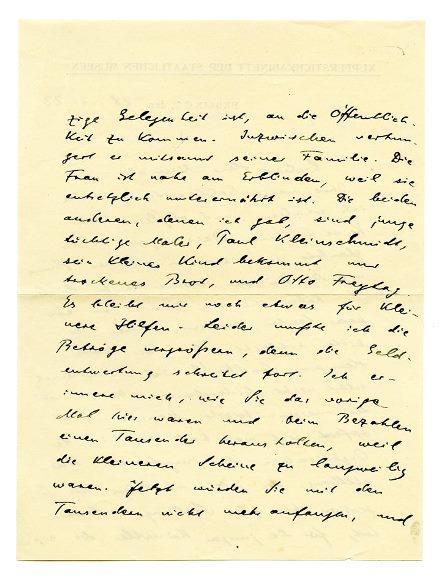 zige Gelegenheit ist, an die Öffentlich-
keit zu kommen. Inzwischen verhun-
gert er mitsamt seiner Familie. Die
Frau ist nahe am Erblinden, weil sie
entsetzlich unterernährt ist. Die beiden
anderen, denen ich gab, sind junge
tüchtige Maler, Paul Kleinschmidt,
sein kleines Kind bekommt nur
trockenes Brot, und Otto Freytag.
Es bleibt mir noch etwas für klei-
nere Hilfen. Leider mußte ich die
Beträge vergrößern, denn die Geld-
entwertung schreitet fort. Ich er-
innere mich, wie Sie das vorige
Mal hier waren und beim Bezahlen
einen Tausender herausholten, weil
die kleineren Scheine zu langweilig
waren. Jetzt würden Sie mit den
Tausendern nicht mehr anfangen, und